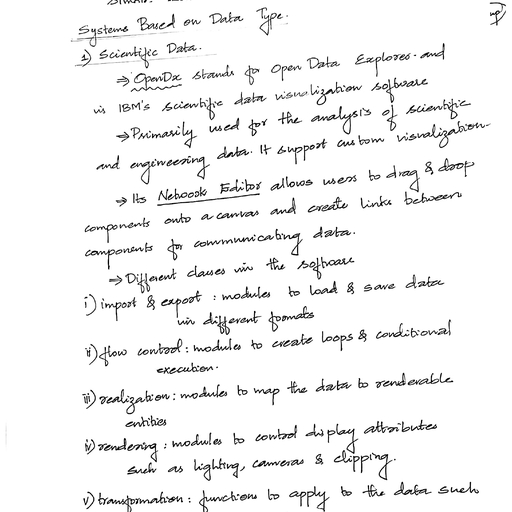 Systems Based on Data Type.
1) Scientific Data.
⇒ OpenDx stands for Open Data Explorer and
is IBM's scientific data visualization software
→ Primarily used for the analysis of scientific
and engineering data. It support custom visualization.
→ Its Network Editor allows users to drag & drop
components onto a canvas and create links between
components for communicating data.
⇒ Different classes in the software
i) import & export : modules to load & save data
in different formats
ii) flow control : modules to create loops & conditional
execution.
iii) realization : modules to map the data to renderable
entities
iv) rendering : modules to control display attributes
such as lighting, cameras & clipping.
v) transformation : functions to apply to the data such